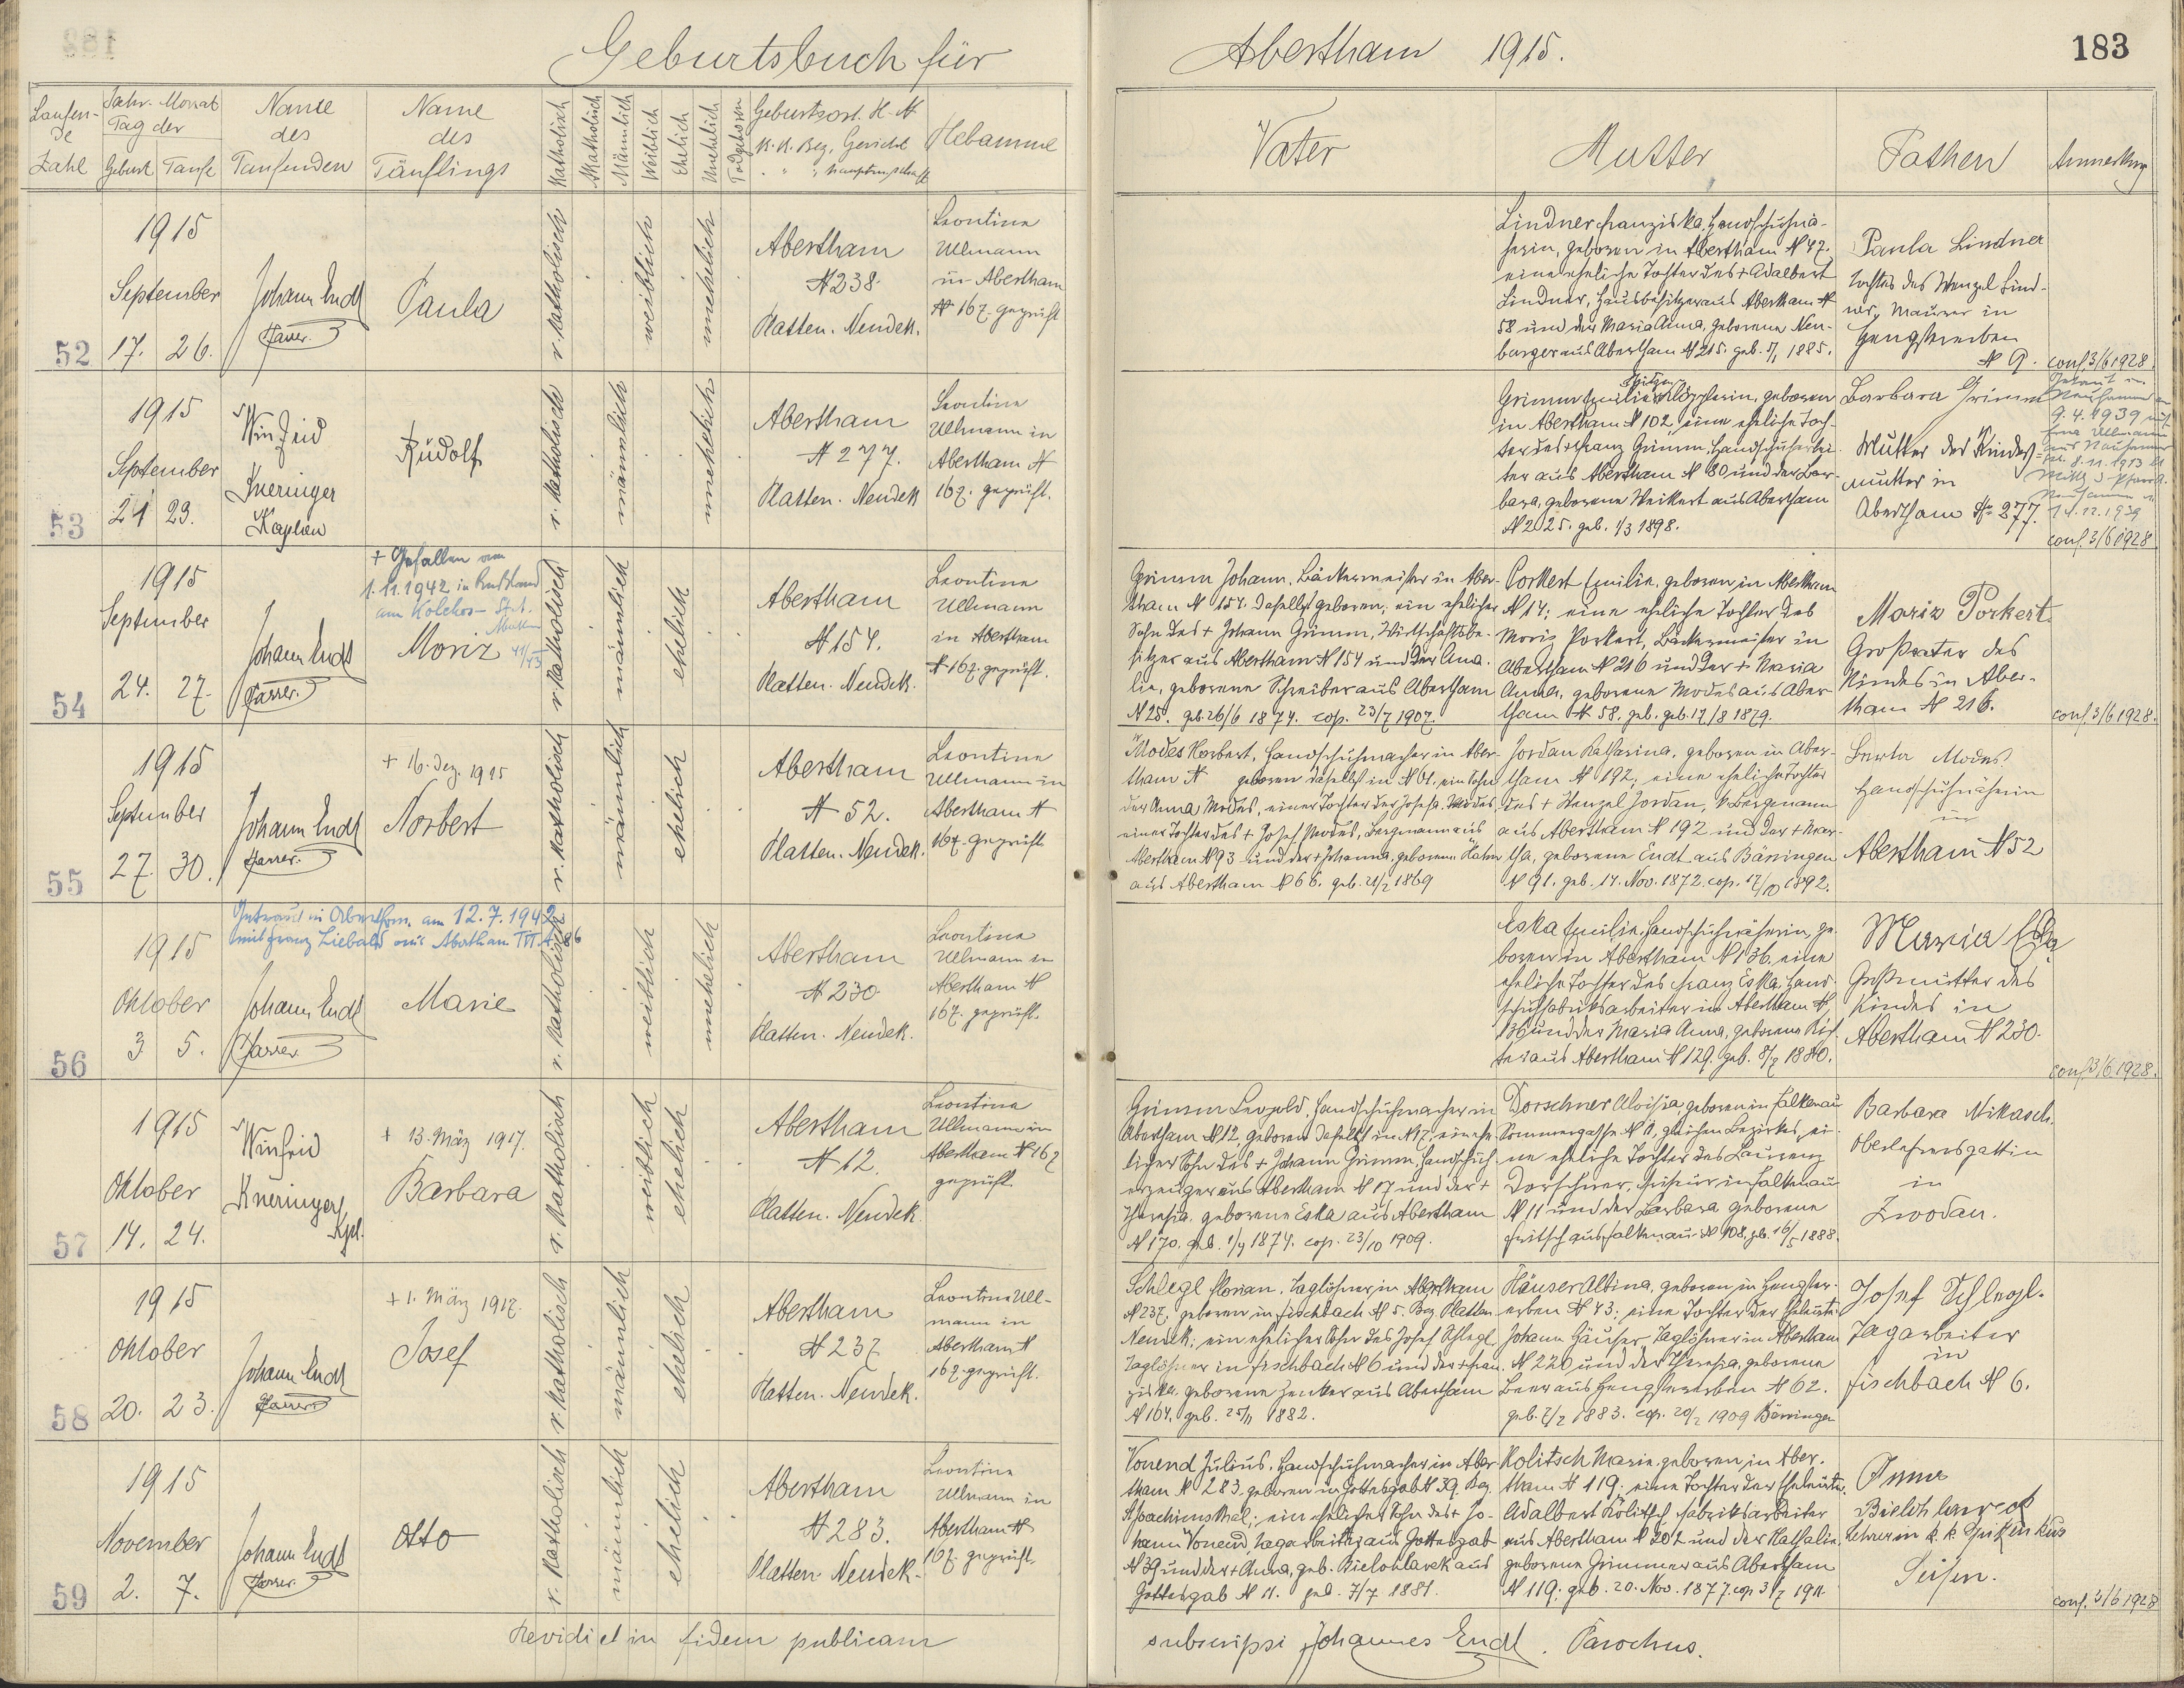 Geburtsbuch für
Abertham 1915.
183
Laufen-
de
Zahl
Jahr. Monat
Tag der
Geburt Taufe
Name
des
Taufenden
Name
des
Täuflings
Katholisch
Akatholisch
Männlich
Weiblich
Ehelich
Unehelich
Todgeboren
Geburtsort. H. N
K. K. Bez. Gericht
" " Hauptmschaft
Hebamme
Vater
Mutter
Pathen
Anmerkung
52
1915
September
17. 26.
Johann Endt
Pfarrer.
Paula
r. katholisch
weiblich
unehelich
Abertham
N 238.
Platten. Neudek.
Leontine
Ullmann
in Abertham
N 167. geprüft
Lindner Franziska, Handschuhnä-
herin, geboren in Abertham N 47.
eine eheliche Tochter des + Adalbert
Lindner, Hausbesitzer aus Abertham N
58 und der Maria Anna, geborene Neu-
burger aus Abertham N 215. geb. 5/1 1885.
Paula Lindner
Tochter des Wenzel Lind-
ner, Maurer in
Hengstererben
N 9.
conf. 3/6 1928.
53
1915
September
21 29.
Winfrid
Kneringer
Kaplan
Rudolf
r. katholisch
männlich
unehelich
Abertham
N 277.
Platten. Neudek
Leontine
Ullmann in
Abertham N
167. geprüft.
Grimm Emilie, Spitzen
klöpplerin, geboren
in Abertham N 102, eine eheliche Toch-
ter des + Franz Grimm, Handschuharbei-
ter aus Abertham N 80 und der Bar-
bara, geborene Weikert aus Abertham
N 225. geb. 1/3 1898.
Barbara Grimm
Mutter der Kindes-
mutter in
Abertham N 277.
Getraut in
Neuhammer am
9.4.1939 mit
Ullmann
aus Neuhammer
8.11.1913
Neuhammer
1.12.1939
conf. 3/6 1928
54
1915
September
24. 27.
Johann Endt
Pfarrer.
+ Gefallen am
1.11.1942 in Russland
am Kolchos-
Moriz 41/43
r. katholisch
männlich
ehelich
Abertham
N 154.
Platten. Neudek.
Leontine
Ullmann
in Abertham
N 167. geprüft.
Grimm Johann, Bäckermeister in Aber-
tham N 154. daselbst geboren, ein ehelicher
Sohn des + Johann Grimm, Wirtschaftsbe-
sitzer aus Abertham N 154 und der Ama-
lie, geborene Schreiber aus Abertham
N 28. geb. 26/6 1874. cop. 23/7 1907.
Porkert Emilie, geboren in Abertham
N 14; eine eheliche Tochter des
Moriz Porkert, Bäckermeister in
Abertham N 216 und der + Maria
Anna, geborene Modes aus Aber-
tham N 58. geb. geb. 17/8 1879.
Moriz Porkert
Großvater des
Kindes in Aber-
tham N 216.
conf. 3/6 1928.
55
1915
September
27. 30.
Johann Endt
Pfarrer.
+ 16. Dez. 1915
Norbert
r. katholisch
männlich
ehelich
Abertham
N 52.
Platten. Neudek.
Leontine
Ullmann in
Abertham N
167. geprüft
Modes Norbert, Handschuhmacher in Aber-
tham N geboren daselbst in N 61, ein Sohn
der Anna Modes, einer Tochter der Josefa Modes,
einer Tochter des + Josef Modes, Bergmann aus
Abertham N 93 und der + Johanna, geborene Hahn
aus Abertham N 66. geb. 21/2 1869
Jordan Katharina, geboren in Aber-
tham N 192; eine eheliche Tochter
des + Wenzel Jordan, Bergmann
aus Abertham N 192 und der + Mar-
tha, geborene Endt aus Bärringen
N 91. geb. 14. Nov. 1872. cop. 17/10 1892.
Berta Modes
Handschuhnäherin
in
Abertham N 52
56
Getraut in Abertham am 12.7.1942
mit Franz Liebald aus Abertham 86
1915
Oktober
3 5.
Johann Endt
Pfarrer
Marie
r. katholisch
weiblich
unehelich
Abertham
N 230
Platten. Neudek.
Leontine
Ullmann in
Abertham N
167. geprüft.
Eska Emilie, Handschuhnäherin, ge-
boren in Abertham N 136, eine
eheliche Tochter des Franz Eska, Hand-
schuhfabriksarbeiter in Abertham N
136 und der Maria Anna, geborene Rich-
ter aus Abertham N 129. geb. 8/7 1880.
Maria Eska
Großmutter des
Kindes in
Abertham N 230.
conf. 3/6 1928.
57
1915
Oktober
14. 24.
Winfrid
Kneringer
Kpl.
+ 13. März 1917.
Barbara
r. katholisch
weiblich
ehelich
Abertham
N 12.
Platten. Neudek
Leontine
Ullmann in
Abertham N 167
geprüft.
Grimm Leopold, Handschuhmacher in
Abertham N 12, geboren daselbst in N 17, ein ehe-
licher Sohn des + Johann Grimm, Handschuh-
erzeuger aus Abertham N 17 und der +
Theresia, geborene Eska aus Abertham
N 170. geb. 1/9 1874. cop. 23/10 1909.
Dorschner Aloisia, geboren in Falkenau
Sommergasse N 11, gleichen Bezirkes, ei-
ne eheliche Tochter des Laurenz
Dorschner, Friseur in Falkenau
N 11 und der Barbara geborene
Fritsch aus Falkenau N 108. geb. 16/5 1888.
Barbara Mikasch
Oberlehrersgattin
in
Zwodau.
58
1915
Oktober
20. 23.
Johann Endt
Pfarrer
+ 1. März 1917.
Josef
r. katholisch
männlich
ehelich
Abertham
N 237
Platten. Neudek.
Leontine Ull-
mann in
Abertham N
167. geprüft.
Schlegl Florian, Taglöhner in Abertham
N 237, geboren in Fischbach N 5. Bez. Platten
Neudek; ein ehelicher Sohn des Josef Schlegl
Taglöhner in Fischbach N 6 und der + Fran-
ziska, geborene Zenker aus Abertham
N 164. geb. 25/11 1882.
Häuser Albina, geboren in Hengster-
erben N 43; eine Tochter der Eheleute
Johann Häuser, Taglöhner in Abertham
N 220 und der Theresia, geborene
Beer aus Hengstererben N 62.
geb. 2/2 1883. cop. 20/2 1909 Bärringen
Josef Schlegl.
Tagarbeiter
in
Fischbach N 6.
59
1915
November
2. 7.
Johann Endt
Pfarrer.
Otto
r. katholisch
männlich
ehelich
Abertham
N 283.
Platten Neudek.
Leontine
Ullmann in
Abertham N
167. geprüft.
Vonend Julius, Handschuhmacher in Aber-
tham N 283. geboren in Gottesgab N 39. Bez.
St. Joachimsthal; ein ehelicher Sohn des + Jo-
hann Vonend, Tagarbeiter aus Gottesgab
N 39 und der + Anna, geb. Bielohlavek aus
Gottesgab N 11. geb. 7/7 1881.
Kolitsch Marie, geboren in Aber-
tham N 119; eine Tochter der Eheleute
Adalbert Kolitsch, Fabriksarbeiter
aus Abertham N 202 und der Nathalie,
geborene Grimm aus Abertham
N 119; geb. 20. Nov. 1877. cop 3/7 1911.
Anna
Bielohlavek
Lehrerin
Seifen.
conf. 3/6 1928
Revidi et in fidem publicam
subscripsi Johannes Endt. Parochus.